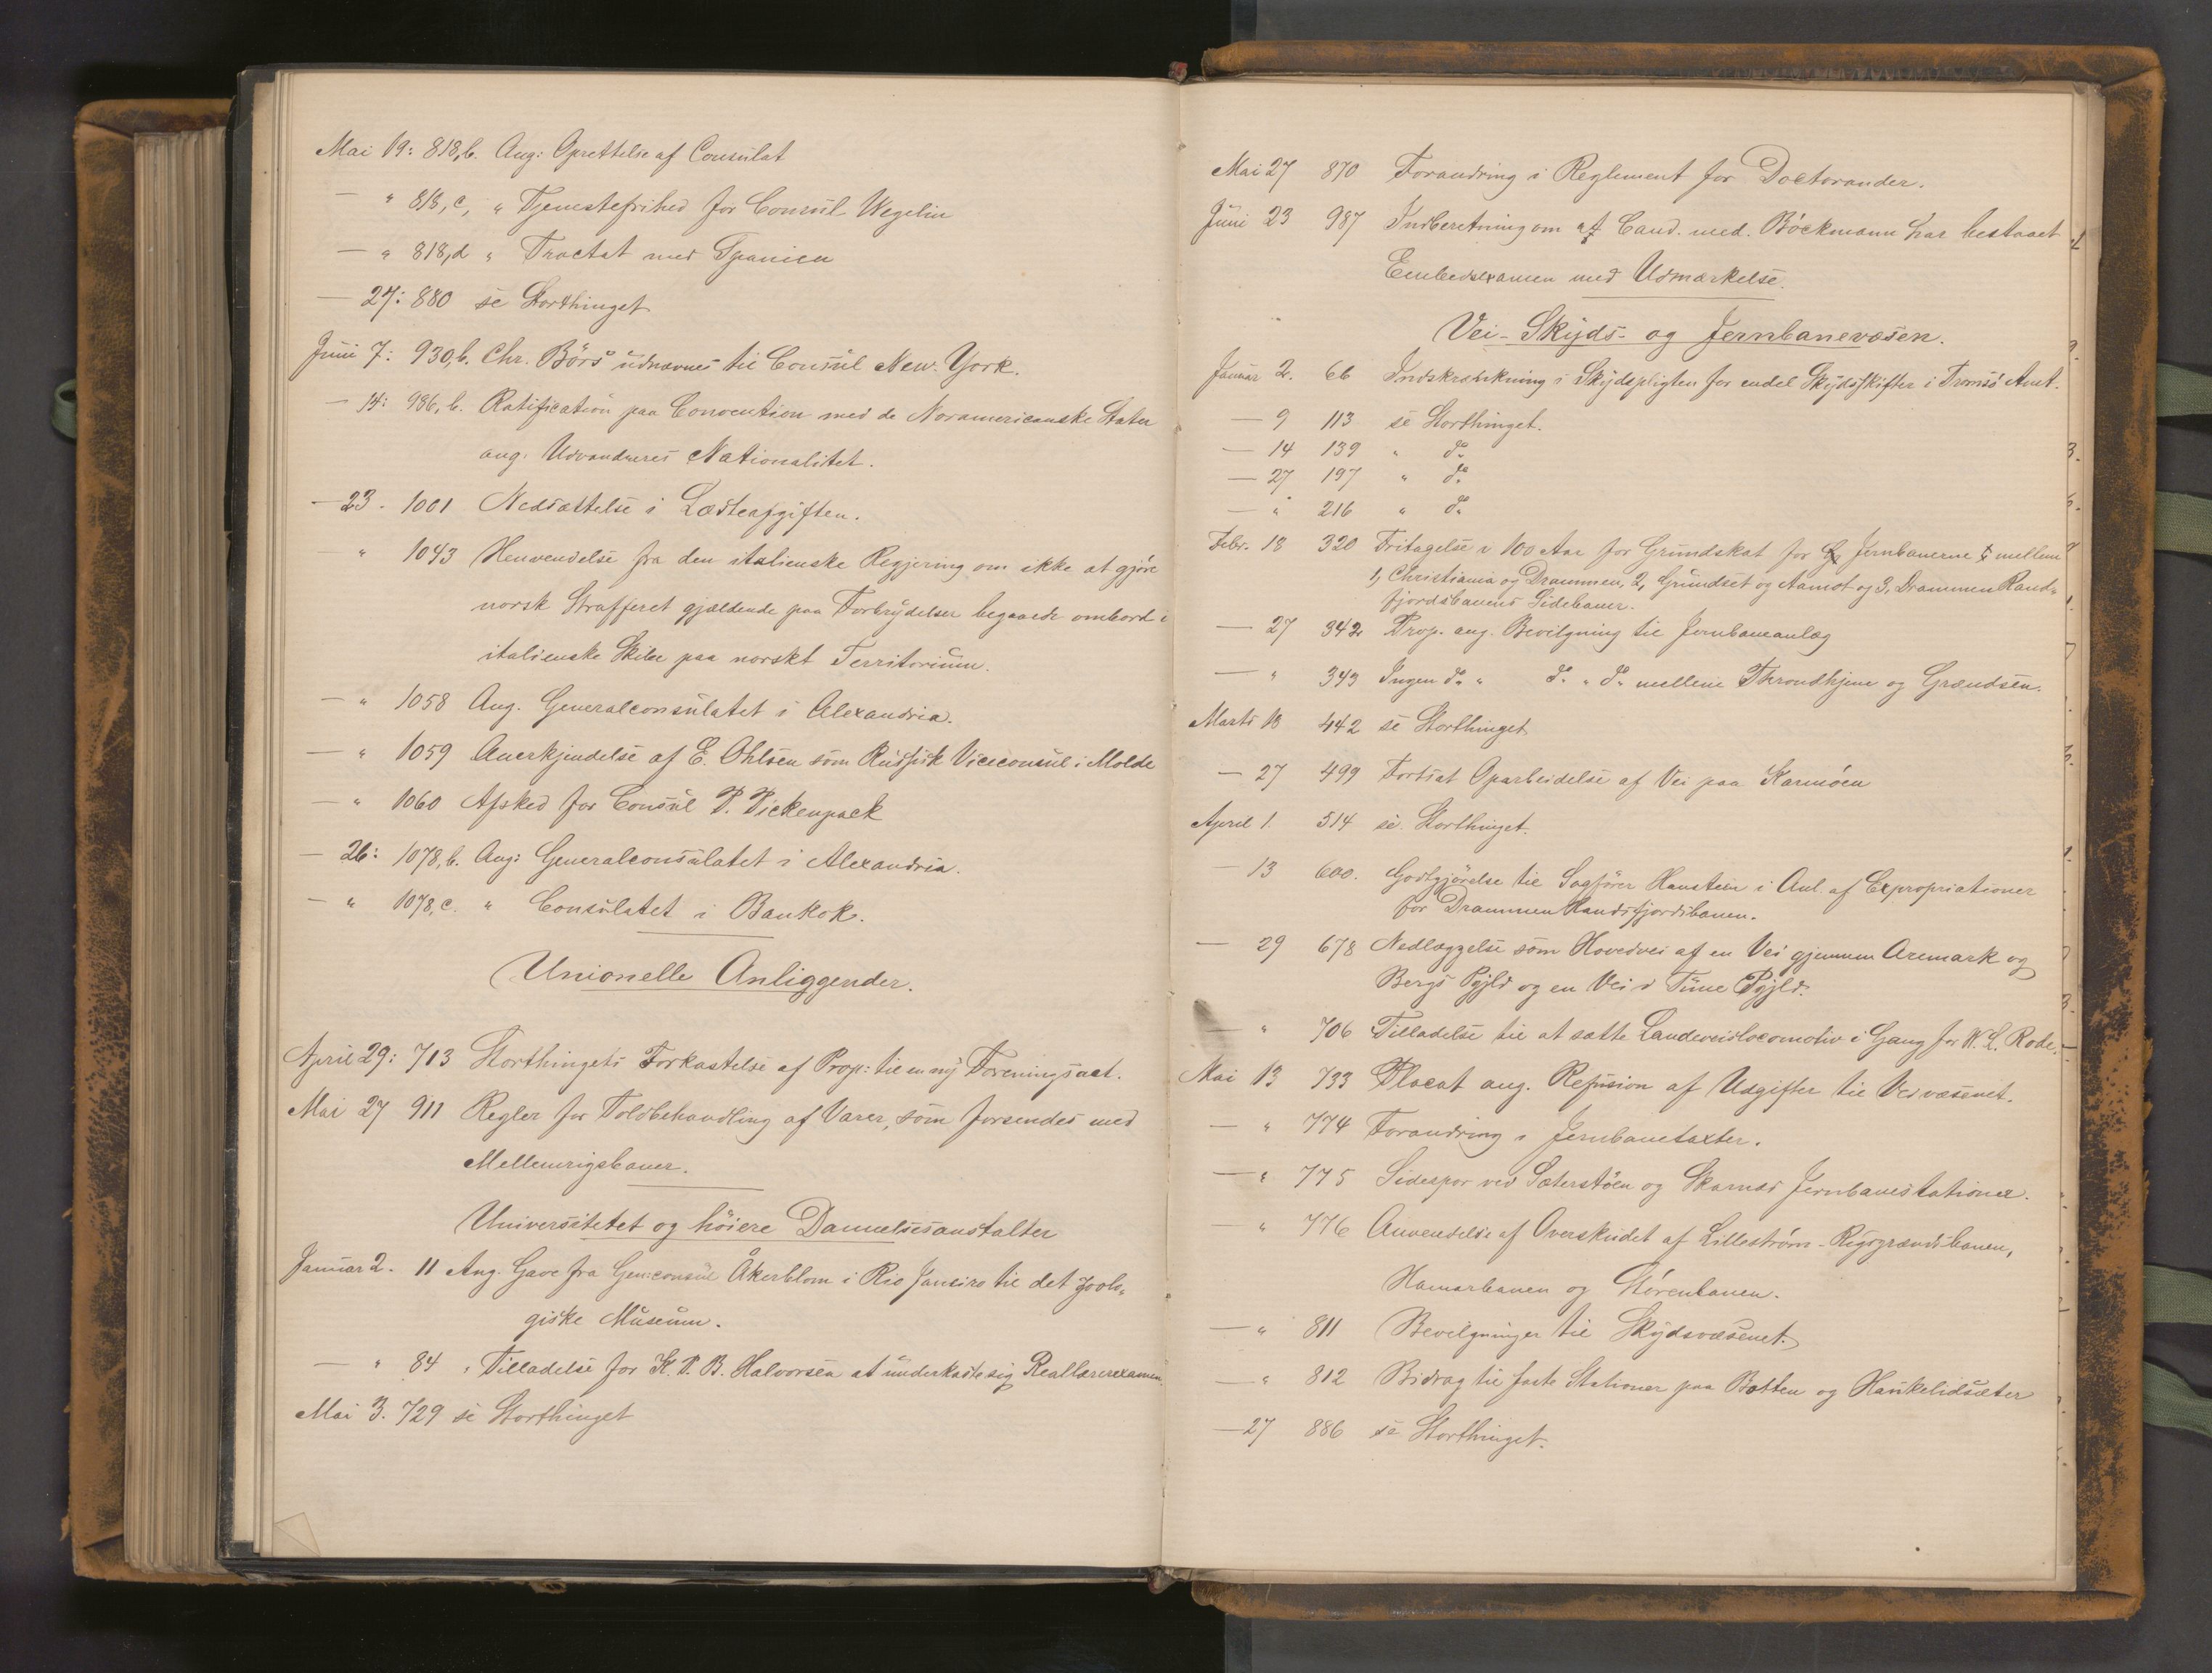 Mai 19: 818,b. Ang: Oprettelse af Consulat
— " 818,c, " Tjenestefrihed for Consul Wegelin
— " 818,d " Tractat med Spanien
— 27: 880 se Storthinget
Juni 7: 930,b. Chr. Börs udnævnes til Consul New-York.
— 14: 986,b. Ratification paa Convention med de Noramericanske Stater
ang. Udvandreres Nationalitet.
— 23. 1001 Nedsættelse i Læsteafgiften.
" 1043 Henvendelse fra den italienske Regjering om ikke at gjöre
norsk Strafferet gjældende paa Forbrydelser begaaede ombord i
italienske Skibe paa norskt Territorium.
— " 1058 Ang. Generalconsulatet i Alexandria.
— " 1059 Anerkjendelse af E. Ohlsen som Russisk Viceconsul i Molde
— " 1060 Afsked for Consul P. Pickenpack
— 26: 1078,b. Ang: Generalconsulatet i Alexandria.
— " 1078,c. " Consulatet i Bankok.
Unionelle Anliggender.
April 29: 713 Storthingets Forkastelse af Prop: til en ny Foreningsact.
Mai 27 911 Regler for Toldbehandling af Varer, som forsendes med
Mellemrigsbaner.
Universitetet og höiere Dannelsesanstalter
Januar 2. 11 Ang. Gave fra Gen:consul Åkerblom i Rio Janeiro til det zoolo-
giske Museum.
— " 84 " Tilladelse for K. P. B. Halvorsen at underkaste sig Reallærerexamen
Mai 3. 729 se Storthinget
Mai 27 870 Forandring i Reglement for Doctorander.
Juni 23 987 Indberetning om at Cand. med. Böckmann har bestaaet
Embedsexamen med Udmærkelse.
Vei- Skyds- og Jernbanevæsen.
Januar 2. 66 Indskrænkning i Skydspligten for endel Skydsskifter i Tromsö Amt.
— 9 113 se Storthinget.
— 14 139 " do.
— 27 197 " do.
— " 216 " do.
Febr. 18 320 Fritagelse i 100 Aar for Grundskat for Jernbanerne mellem
1, Christiania og Drammen, 2, Grundset og Aamot og 3, Drammen Rand-
fjordsbanens Sidebaner.
— 27 342 Prop. ang. Bevilgning til Jernbaneanlæg
— " 343 Ingen do. " do. " do. mellem Throndhjem og Grændsen.
Marts 18 442 se Storthinget
— 27 499 Fortsat Oparbeidelse af Vei paa Karmöen
April 1. 514 se. Storthinget.
— 13 600. Godtgjörelse til Sagförer Hansteen i Anl. af Expropriationer
for Drammen Randsfjordsbanen.
— 29 678 Nedlæggelse som Hovedvei af en Vei gjennem Aremark og
Bergs Pgjld og en Vei i Tune Pgjld.
— " 706 Tilladelse til at sætte Landeveislocomotiv i Gang for W. L. Rode.
Mai 13 733 Placat ang. Refusion af Udgifter til Veivæsenet.
— " 774 Forandring i Jernbanetaxter.
— " 775 Sidespor ved Sæterstöen og Skarnæs Jernbanestationer.
— " 776 Anvendelse af Overskudet af Lilleström- Rigsgrændsbanen,
Hamarbanen og Störenbanen.
— " 811 Bevilgninger til Skydsvæsenet.
— " 812 Bidrag til faste Stationer paa Botten og Haukelidsæter
— 27 886 se Storthinget.